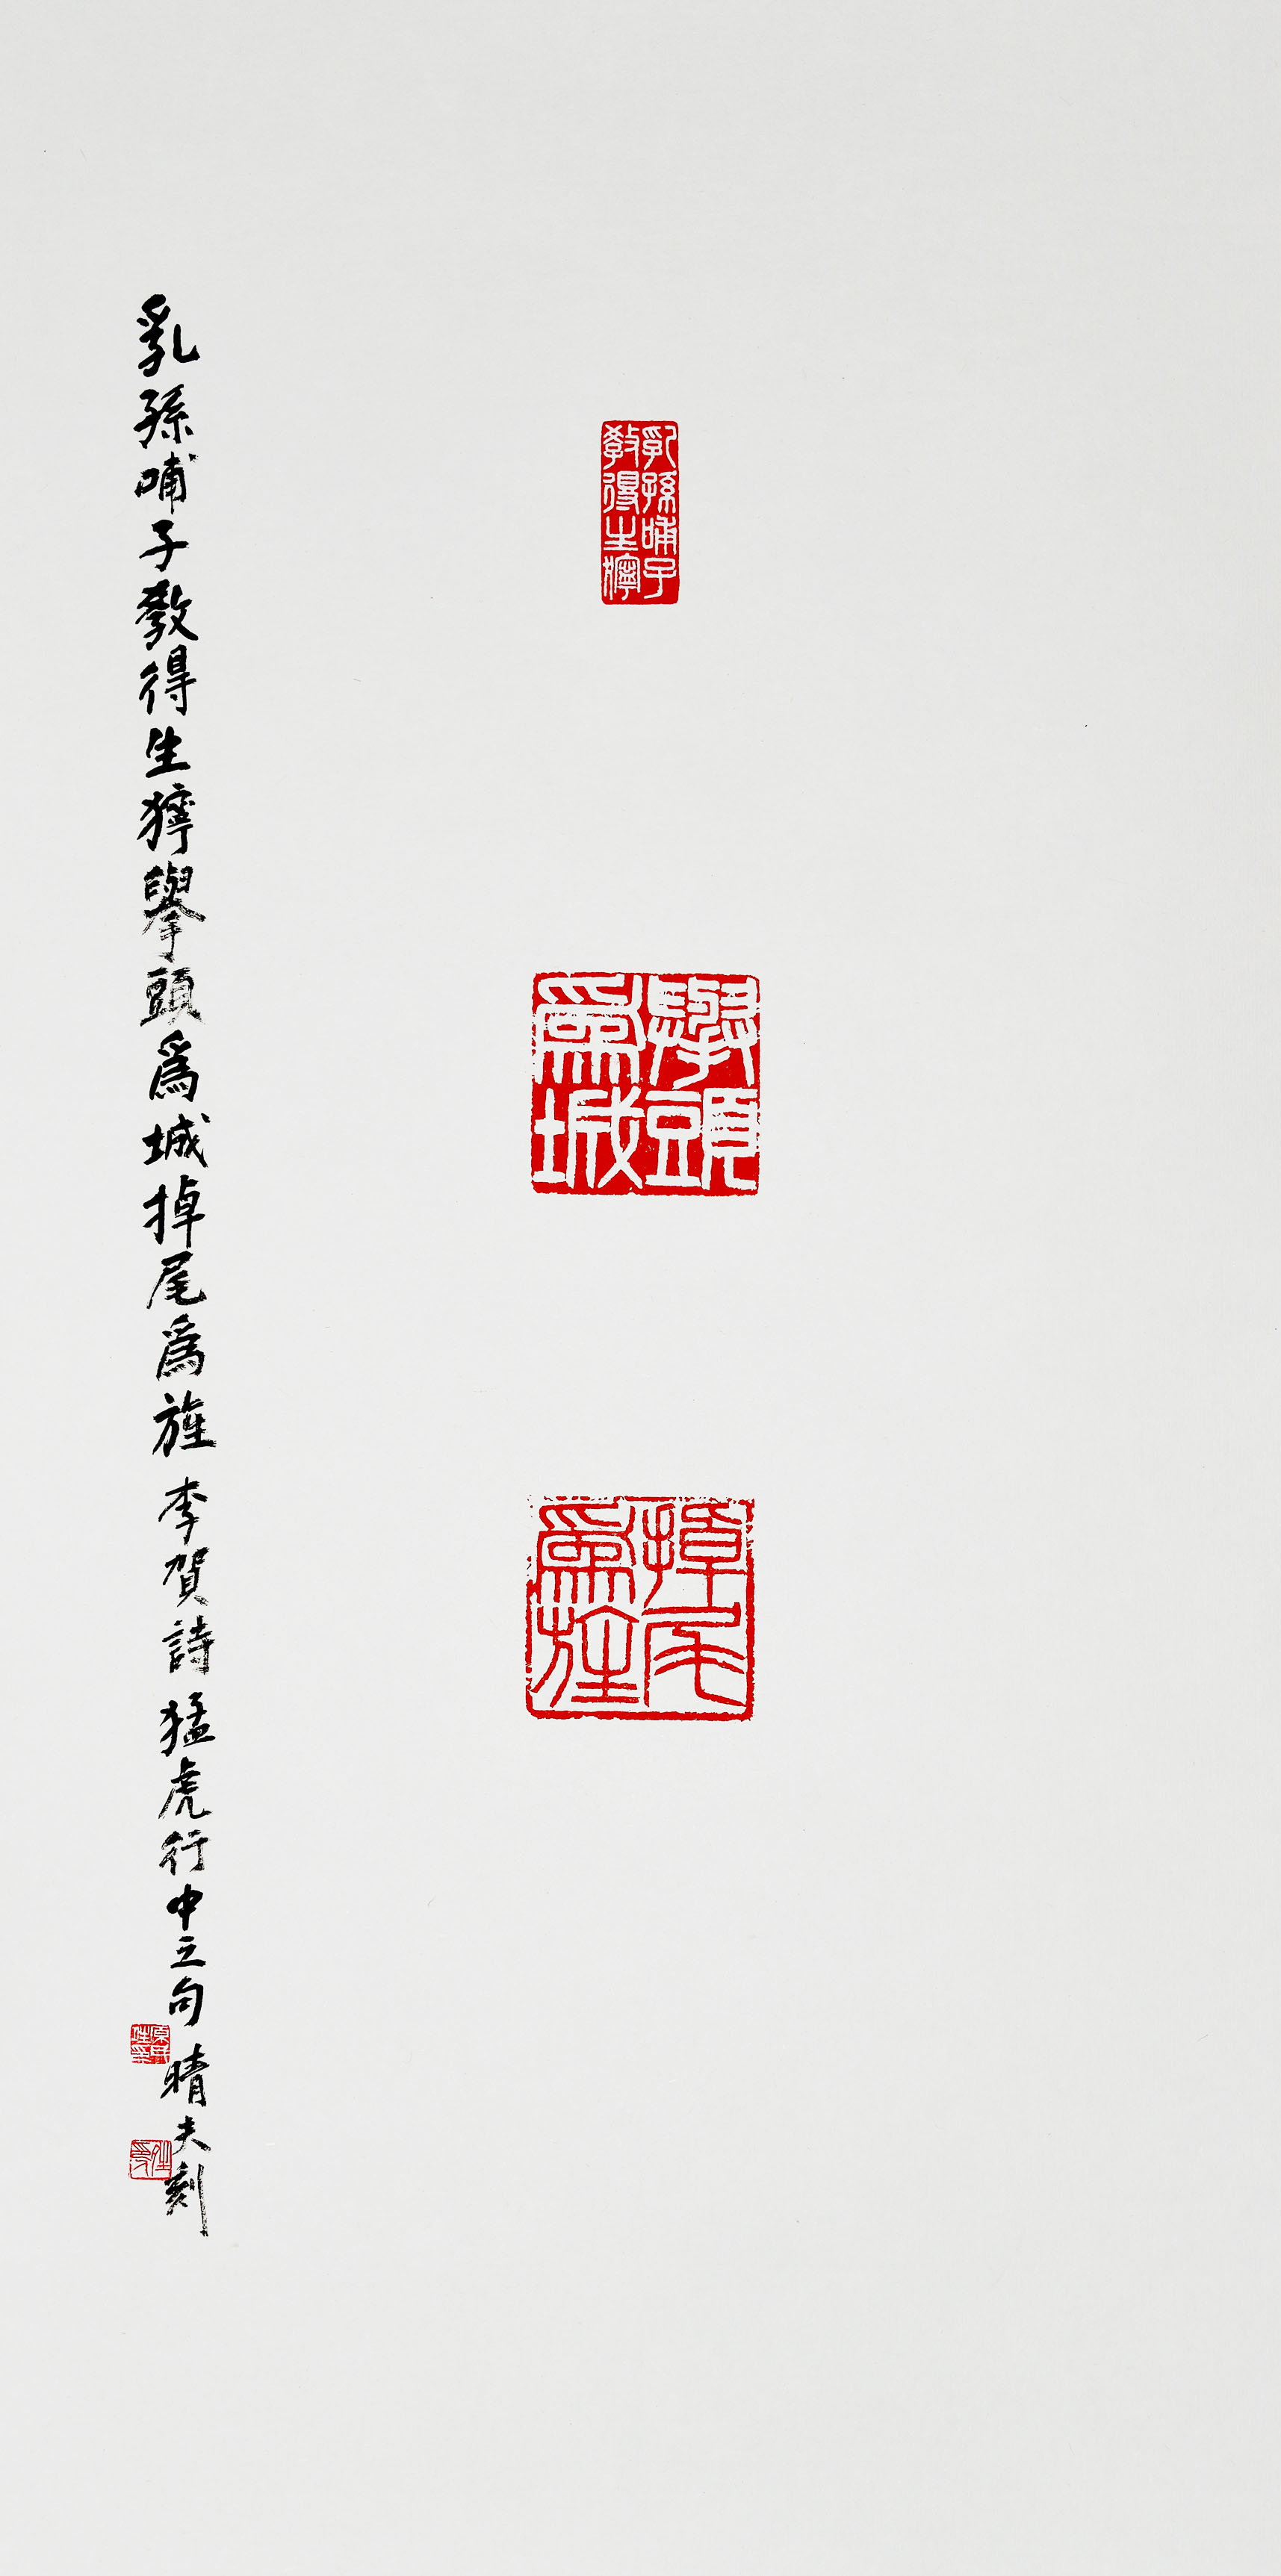 乳孫哺子
教得生獰
舉頭
爲城
掉尾
爲旌
乳孫哺子教得生獰舉頭爲城掉尾爲旌 李賀詩 猛虎行中之句 晴夫刻